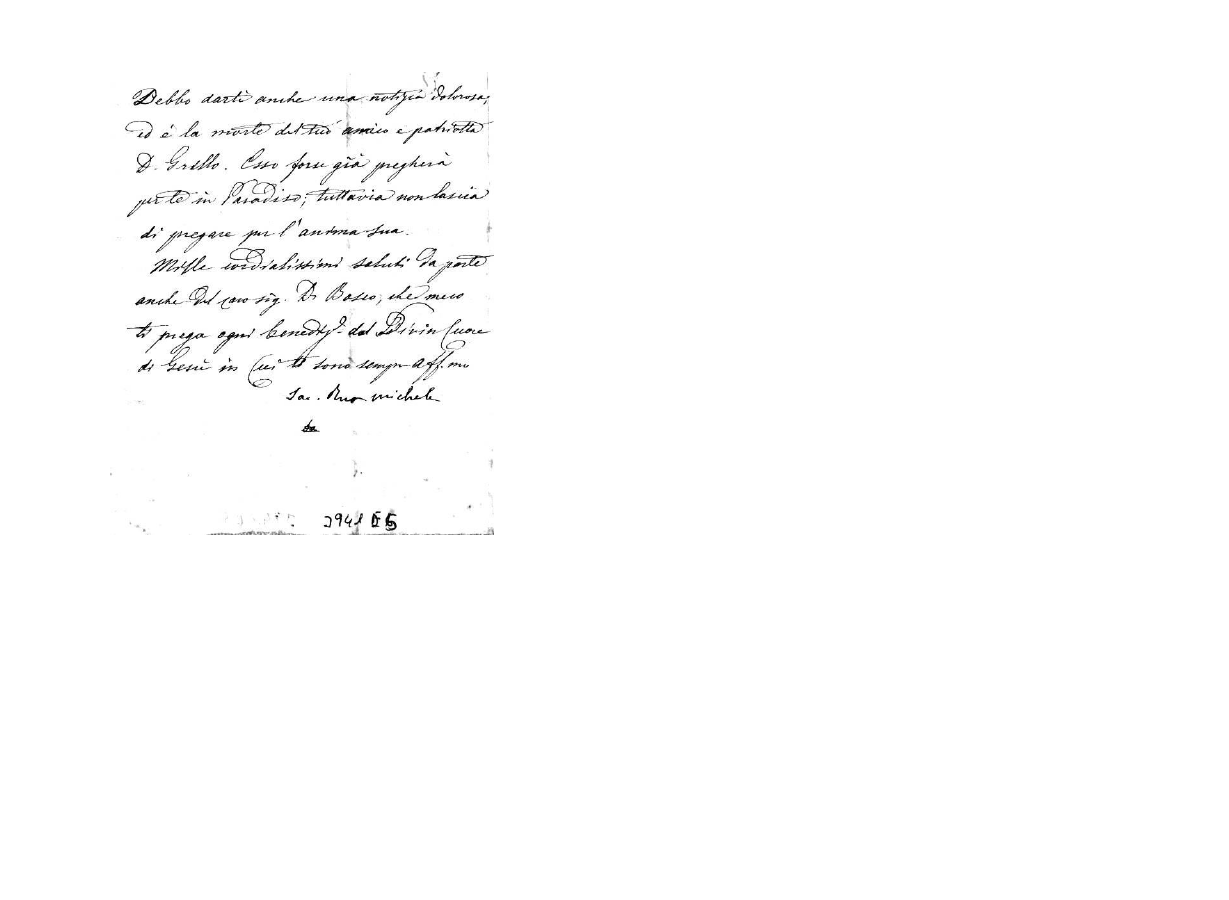 Debbo darti anche una notizia dolorosa,
ed è la morte del tuo amico e patriotta
D. Grillo. Esso forse già pregherà
per te in Paradiso; tuttavia non lascia
di pregare per l'anima sua.
Mille cordialissimi saluti da parte
anche del caro sig. D. Bosco, che meco
ti prega ogni benedize. dal Divin Cuore
di Gesù in Cui ti sono sempre aff.mo
Sac. Rua Michele
2941